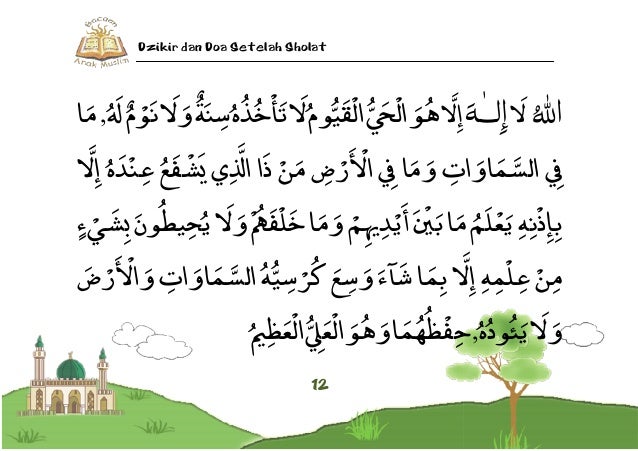 Bacaan
Anak Muslim
Dzikir dan Doa Setelah Sholat
اللهُ لَا إِلَـٰهَ إِلَّا هُوَ الْحَيُّ الْقَيُّومُ لَا تَأْخُذُهُ سِنَةٌ وَلَا نَوْمٌ لَهُ, مَا
فِي السَّمَاوَاتِ وَمَا فِي الْأَرْضِ مَنْ ذَا الَّذِي يَشْفَعُ عِنْدَهُ إِلَّا
بِإِذْنِهِ يَعْلَمُ مَا بَيْنَ أَيْدِيهِمْ وَمَا خَلْفَهُمْ وَلَا يُحِيطُونَ بِشَيْءٍ
مِنْ عِلْمِهِ إِلَّا بِمَا شَآءَ وَسِعَ كُرْسِيُّهُ السَّمَاوَاتِ وَالْأَرْضَ
وَلَا يَئُودُهُ, حِفْظُهُمَا وَهُوَ الْعَلِيُّ الْعَظِيمُ
12